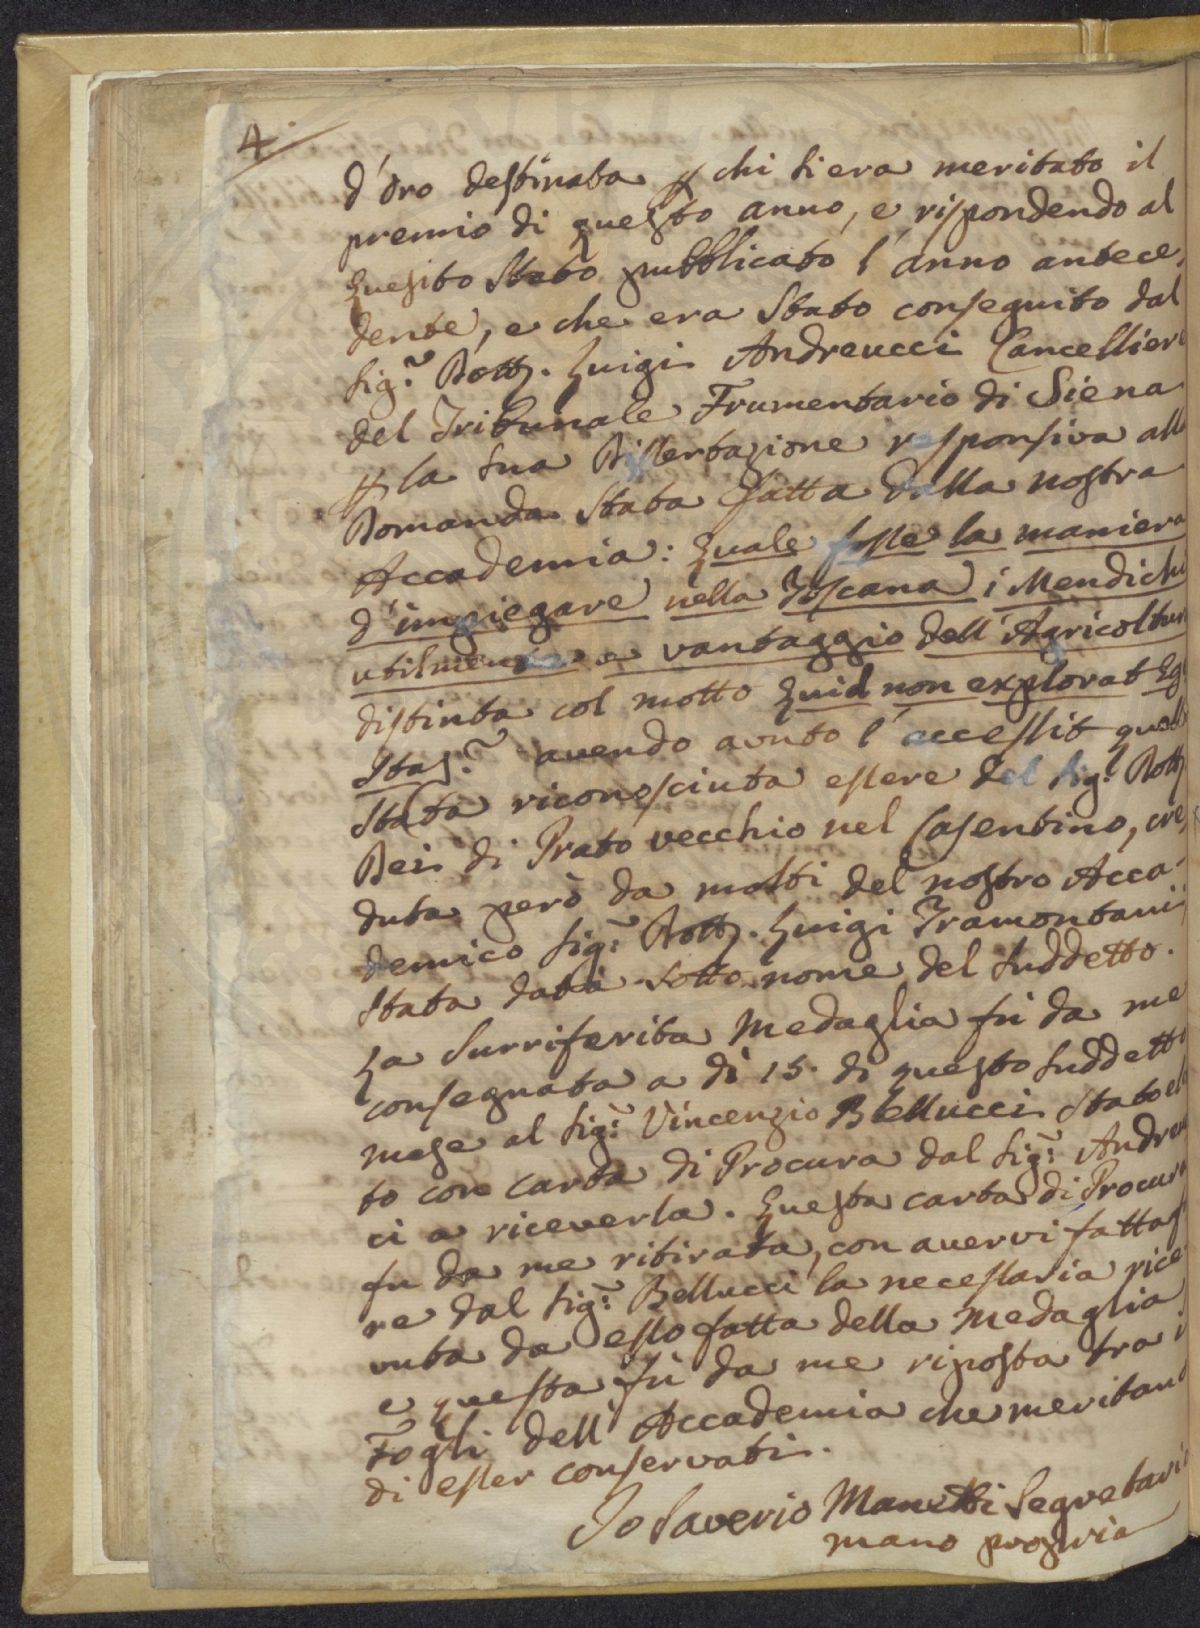 4.
d'oro destinata p chi si era meritato il
premio di questo anno, e rispondendo al
Quesito stato pubblicato l'anno antece,
dente, e che era stato conseguito dal
Sig.r Dott. Luigi Andreucci Cancellieri
del Tribunale Frumentario di Siena
p la sua Dissertazione responsiva alla
Domanda stata fatta dalla nostra
Accademia: Quale fosse la maniera
d'impiegare nella Toscana i Mendichi
utilmente a vantaggio dell'Agricoltura
distinta col motto Quid non explorat
Itas.r avendo avuto l'accessit quella
stata riconosciuta essere del Sig.r Dott
Bei di Prato vecchio nel Casentino, cre,
duta però da molti del nostro Acca-
demico Sig.r Dott. Luigi Tramontani
stata data sotto nome del suddetto.
La surriferita Medaglia fù da me
consegnata a dì 15. di questo suddetto
mese al Sig.r Vincenzio Bellucci stato el
to con carta di Procura dal Sig.r Andreu
ci a riceverla. Questa carta di Procura
fu da me ritirata, con avervi fatta f
re dal Sig.r Bellucci la necessaria rice
vuta da esso fatta della Medaglia
e questa fù da me riposta tra i
Fogli dell'Accademia che meritano
di esser conservati.
Io Saverio Manetti Segretario
mano propria